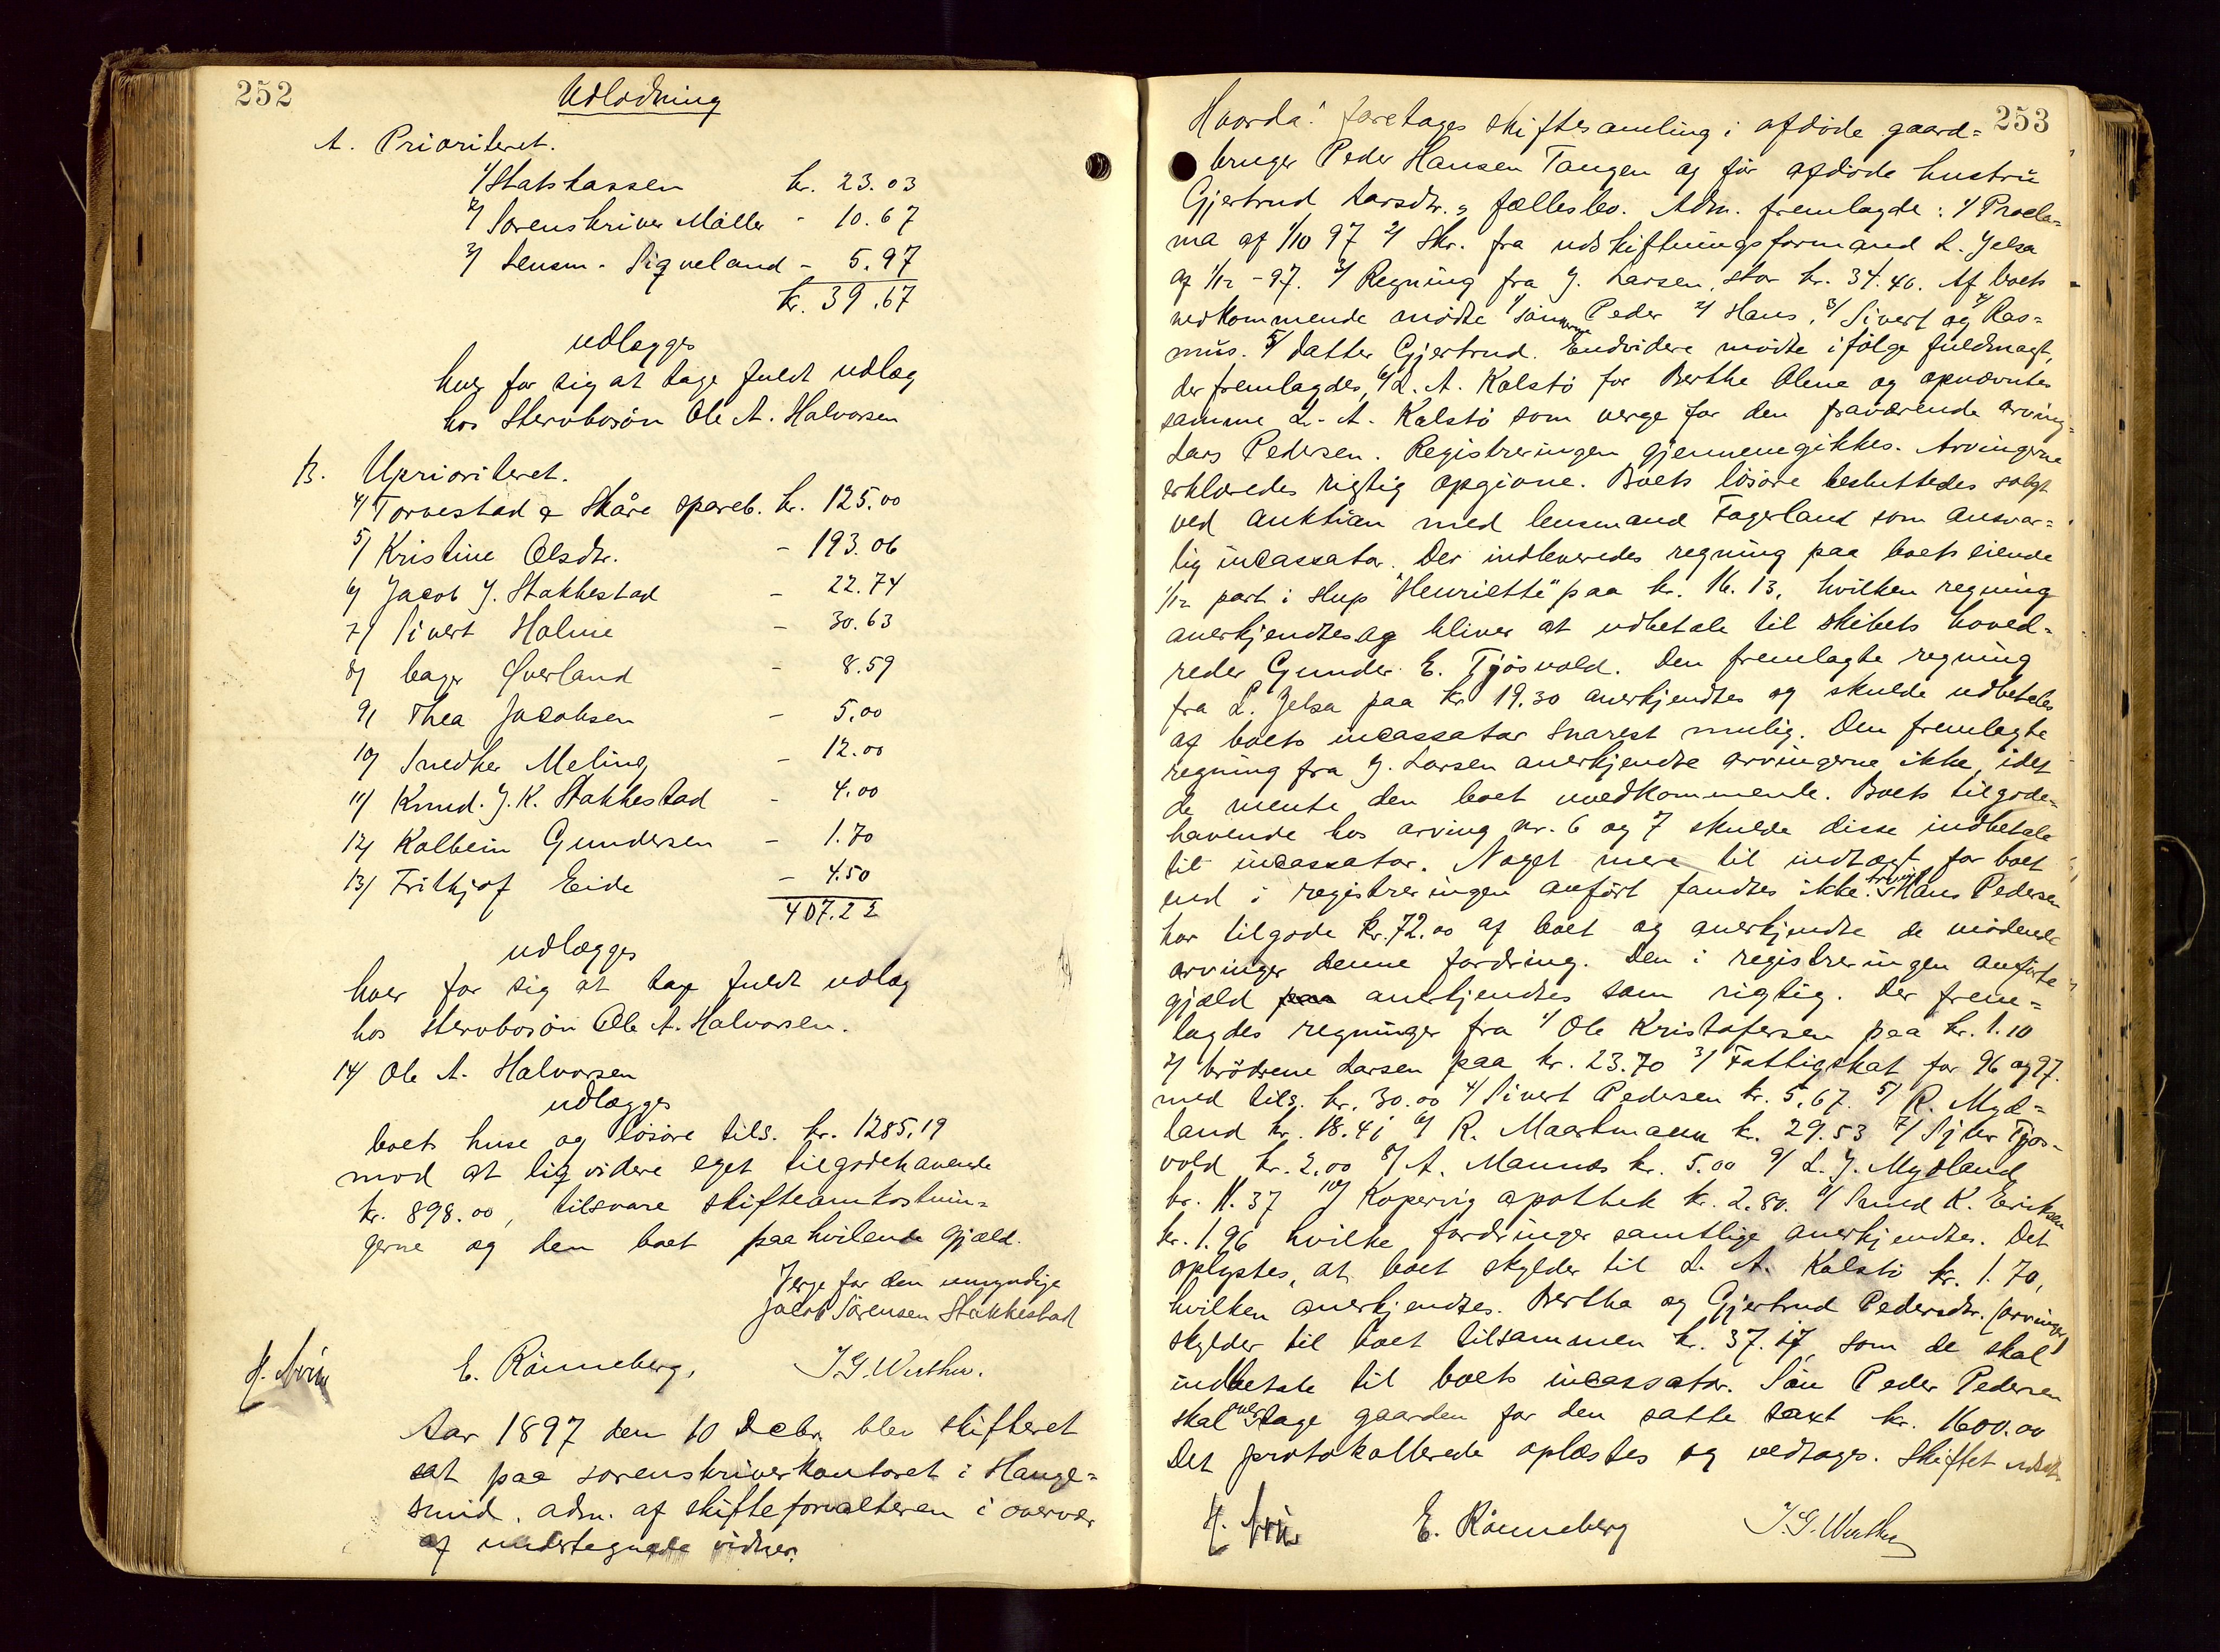 252
Udlodning
A. Prioriteret.
1/ Statskassen kr. 23.03
2/ Sorenskriver Möller - 10.67
3/ Lensm. Sigveland - 5.97
kr. 39.67
udlægges
hver for sig at tage fuldt udlæg
hos Stervbosön Ole A. Halvorsen
B. Uprioriteret.
4/ Torvestad & Skåre spareb. kr. 125.00
5/ Kristine Olsdtr. - 193.06
6/ Jacob J. Stakkestad - 22.74
7/ Sivert Holme - 30.63
8/ bager Øverland - 8.59
9/ Thea Jacobsen - 5.00
10/ Snedker Meling - 12.00
11/ Knud. J. K. Stakkestad - 4.00
12/ Kolbein Gundersen - 1.70
13/ Fritkjof Eide - 4.50
407.22
udlægges
hver for sig at tage fuldt udlæg
hos stervbosön Ole A. Halvorsen.
14/ Ole A. Halvorsen
udlægges
boets huse og lösöre tils. kr. 1285.19
mod at liqvidere eget tilgodehavende
kr. 898.00, tilsvare skifteomkostnin=
gerne og den boet paahvilende gjæld.
Verge for den umyndige
Jacob Sörensen Stakkestad
E. Rönneberg, J. G. Wuthu.
Aar 1897 den 10 Decbr. blev skifteret
sat paa sorenskriverkontoret i Hauge=
sund. adm. af skifteforvalteren i overvær
af undertegnede vidner.
253
Hvorda: foretages skiftesamling i afdöde gaard=
bruger Peder Hansen Tangen og för afdöde hustru
Gjertrud Larsdtr.s fællesbo. Adm. fremlagde: 1/ Procla=
ma af 1/10 97 2/ Skr. fra udskiftningsformand L. Jelsa
af 1/12 - 97. 3/ Regning fra J. Larsen, stor kr. 34.40. Af boets
vedkommende mödte 1/ sönnerne Peder 2/ Hans, 3/ Sivert og 4/ Ras=
mus. 5/ datter Gjertrud. Endvidere mödte ifölge fuldmagt,
der fremlagdes, 6/ L. A. Kolstö for Berthe Olene og opnævntes
samme L. A. Kolstö som verge for den fraværende arving=
Lars Pedersen. Registreringen gjennemgikkes. Arvingerne
erklæredes rigtig opgivne. Boets lösöre besluttedes solgt
ved auktion med lensmand Fagerland som ansvar=
lig incassator. Der indleveredes regning paa boets eiende
1/12 part i slup "Henriette" paa kr. 16.13, hvilken regning
anerkjendtes og bliver at udbetale til skibets hoved=
reder Gunder E. Tjösvold. Den fremlagte regning
fra L. Jelsa paa kr 19.30 anerkjendtes og skulde udbetales
af boets incassator snarest mulig. Den fremlagte
regning fra J. Larsen anerkjendte arvingerne ikke, idet
de mente den boet uvedkommende. Boets tilgode=
havende hos arving nr. 6 og 7 skulde disse indbetale
til incassator. Noget mere til indtægt for boet
end i registreringen anfört fandtes ikke. Arving Hans Pedersen
har tilgode kr. 72.00 af boet og anerkjendte de mödende
arvinger denne fordring. Den i registreringen anförte
gjæld paa anerkjendtes som rigtig. Der frem=
lagdes regninger fra 1/ Ole Kristofersen paa kr. 1.10
2/ brödrene Larsen paa kr. 23.70 3/ Fattigskat for 96 og 97.
med tils. kr. 30.00 4/ Sivert Pedersen kr. 5.67. 5/ R. Myd=
land kr. 18.41 6/ R. Maartmann kr. 29.53 7/ Sjur Tjös=
vold kr. 2.00 8/ A. Mannes kr. 5.00 9/ L. J. Mydland
kr. 11.37 10/ Kopervig apothek kr. 2.80. 11/ Smed K. Eriksen
kr. 1.96 hvilke fordringer samtlige anerkjendtes. Det
oplystes, at boet skylder til L. A. Kolstö kr. 1.70,
hvilken anerkjendtes. Bertha og Gjertrud Pedersdtr. (arvinger)
skylder til boet tilsammen kr. 37.17, som de skal
indbetale til boets incassator. Sön Peder Pedersen
skal overtage gaarden for den satte taxt kr. 1600.00
Det protokollerede oplæstes og vedtoges. Skiftet udsat.
E. Rönneberg J. G. Wuthu